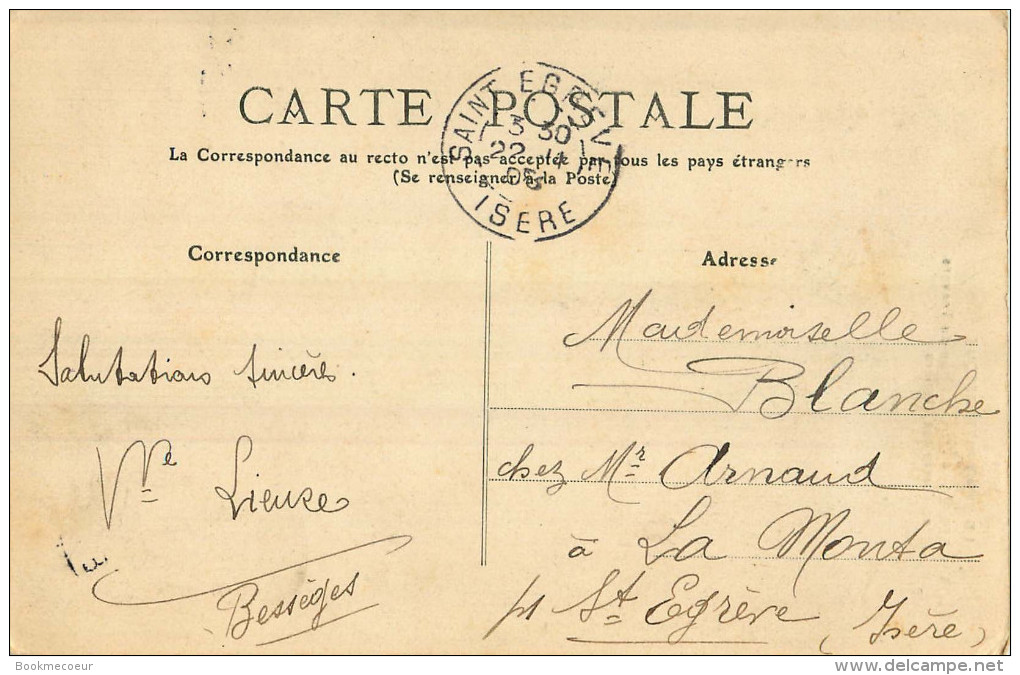 CARTE POSTALE
La Correspondance au recto n'est pas acceptée par tous les pays étrangers
(Se renseigner à la Poste)
SAINT EGREVE
3 30
22 11
06
ISERE
Correspondance
Salutations sincères.
Vve Lieuze
Bessèges
Adresse
Mademoiselle
Blanche
chez Mr Arnaud
à La Monta
St Egrève (Isère)
Bookmecoeur
www.delcampe.net